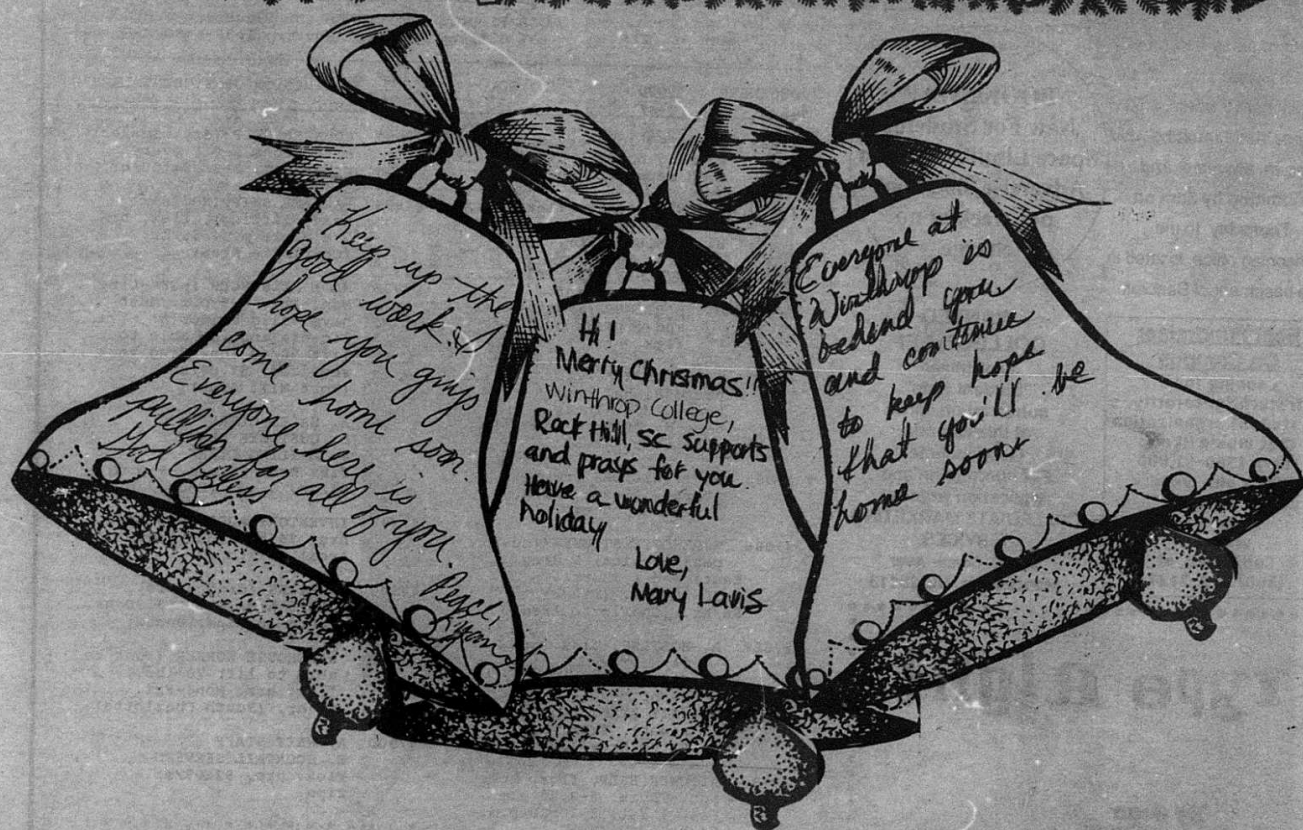 Keep up the
good work. I
hope you guys
come home soon.
Everyone here is
pulling for all of you.
God Bless
Peace,
Hi!
Merry Christmas!!
Winthrop College,
Rock Hill, SC supports
and prays for you.
Have a wonderful
holiday
Love,
Mary Lavis
Everyone at
Winthrop is
behind you
and continues
to keep hope
that you'll be
home soon